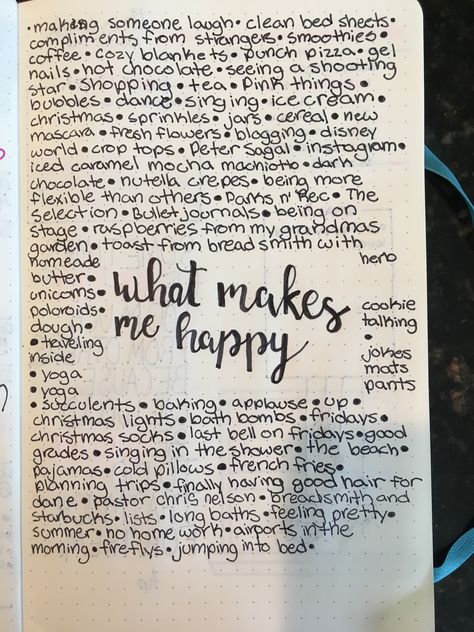 •making someone laugh•clean bed sheets•
compliments from strangers•smoothies•
coffee•cozy blankets•punch pizza•gel
nails•hot chocolate•seeing a shooting
star•shopping•tea•Pink things•
bubbles•dance•singing•ice cream•
christmas•sprinkles•jars•cereal•new
mascara•fresh flowers•blogging•disney
world•crop tops•Peter Sagal•instagram•
iced caramel mocha machiotto•dark
chocolate•nutella crepes•being more
flexible than others•Parks n' Rec•The
selection•Bullet journals•being on
stage•raspberries from my grandmas
garden•toast from bread smith with
homeade herb
butter•
unicorns•
poloroids• cookie
dough• talking
•traveling •
inside jokes
•yoga mats
•yoga pants
what makes
me happy
•succulents•baking•applause•up•
christmas lights•bath bombs•fridays•
christmas socks•last bell on fridays•good
grades•singing in the shower•the beach•
pajamas•cold pillows•french fries•
planning trips•finally having good hair for
dane•pastor chris nelson•breadsmith and
starbucks•lists•long baths•feeling pretty•
summer•no home work•airports in the
morning•fireflys•jumping into bed•